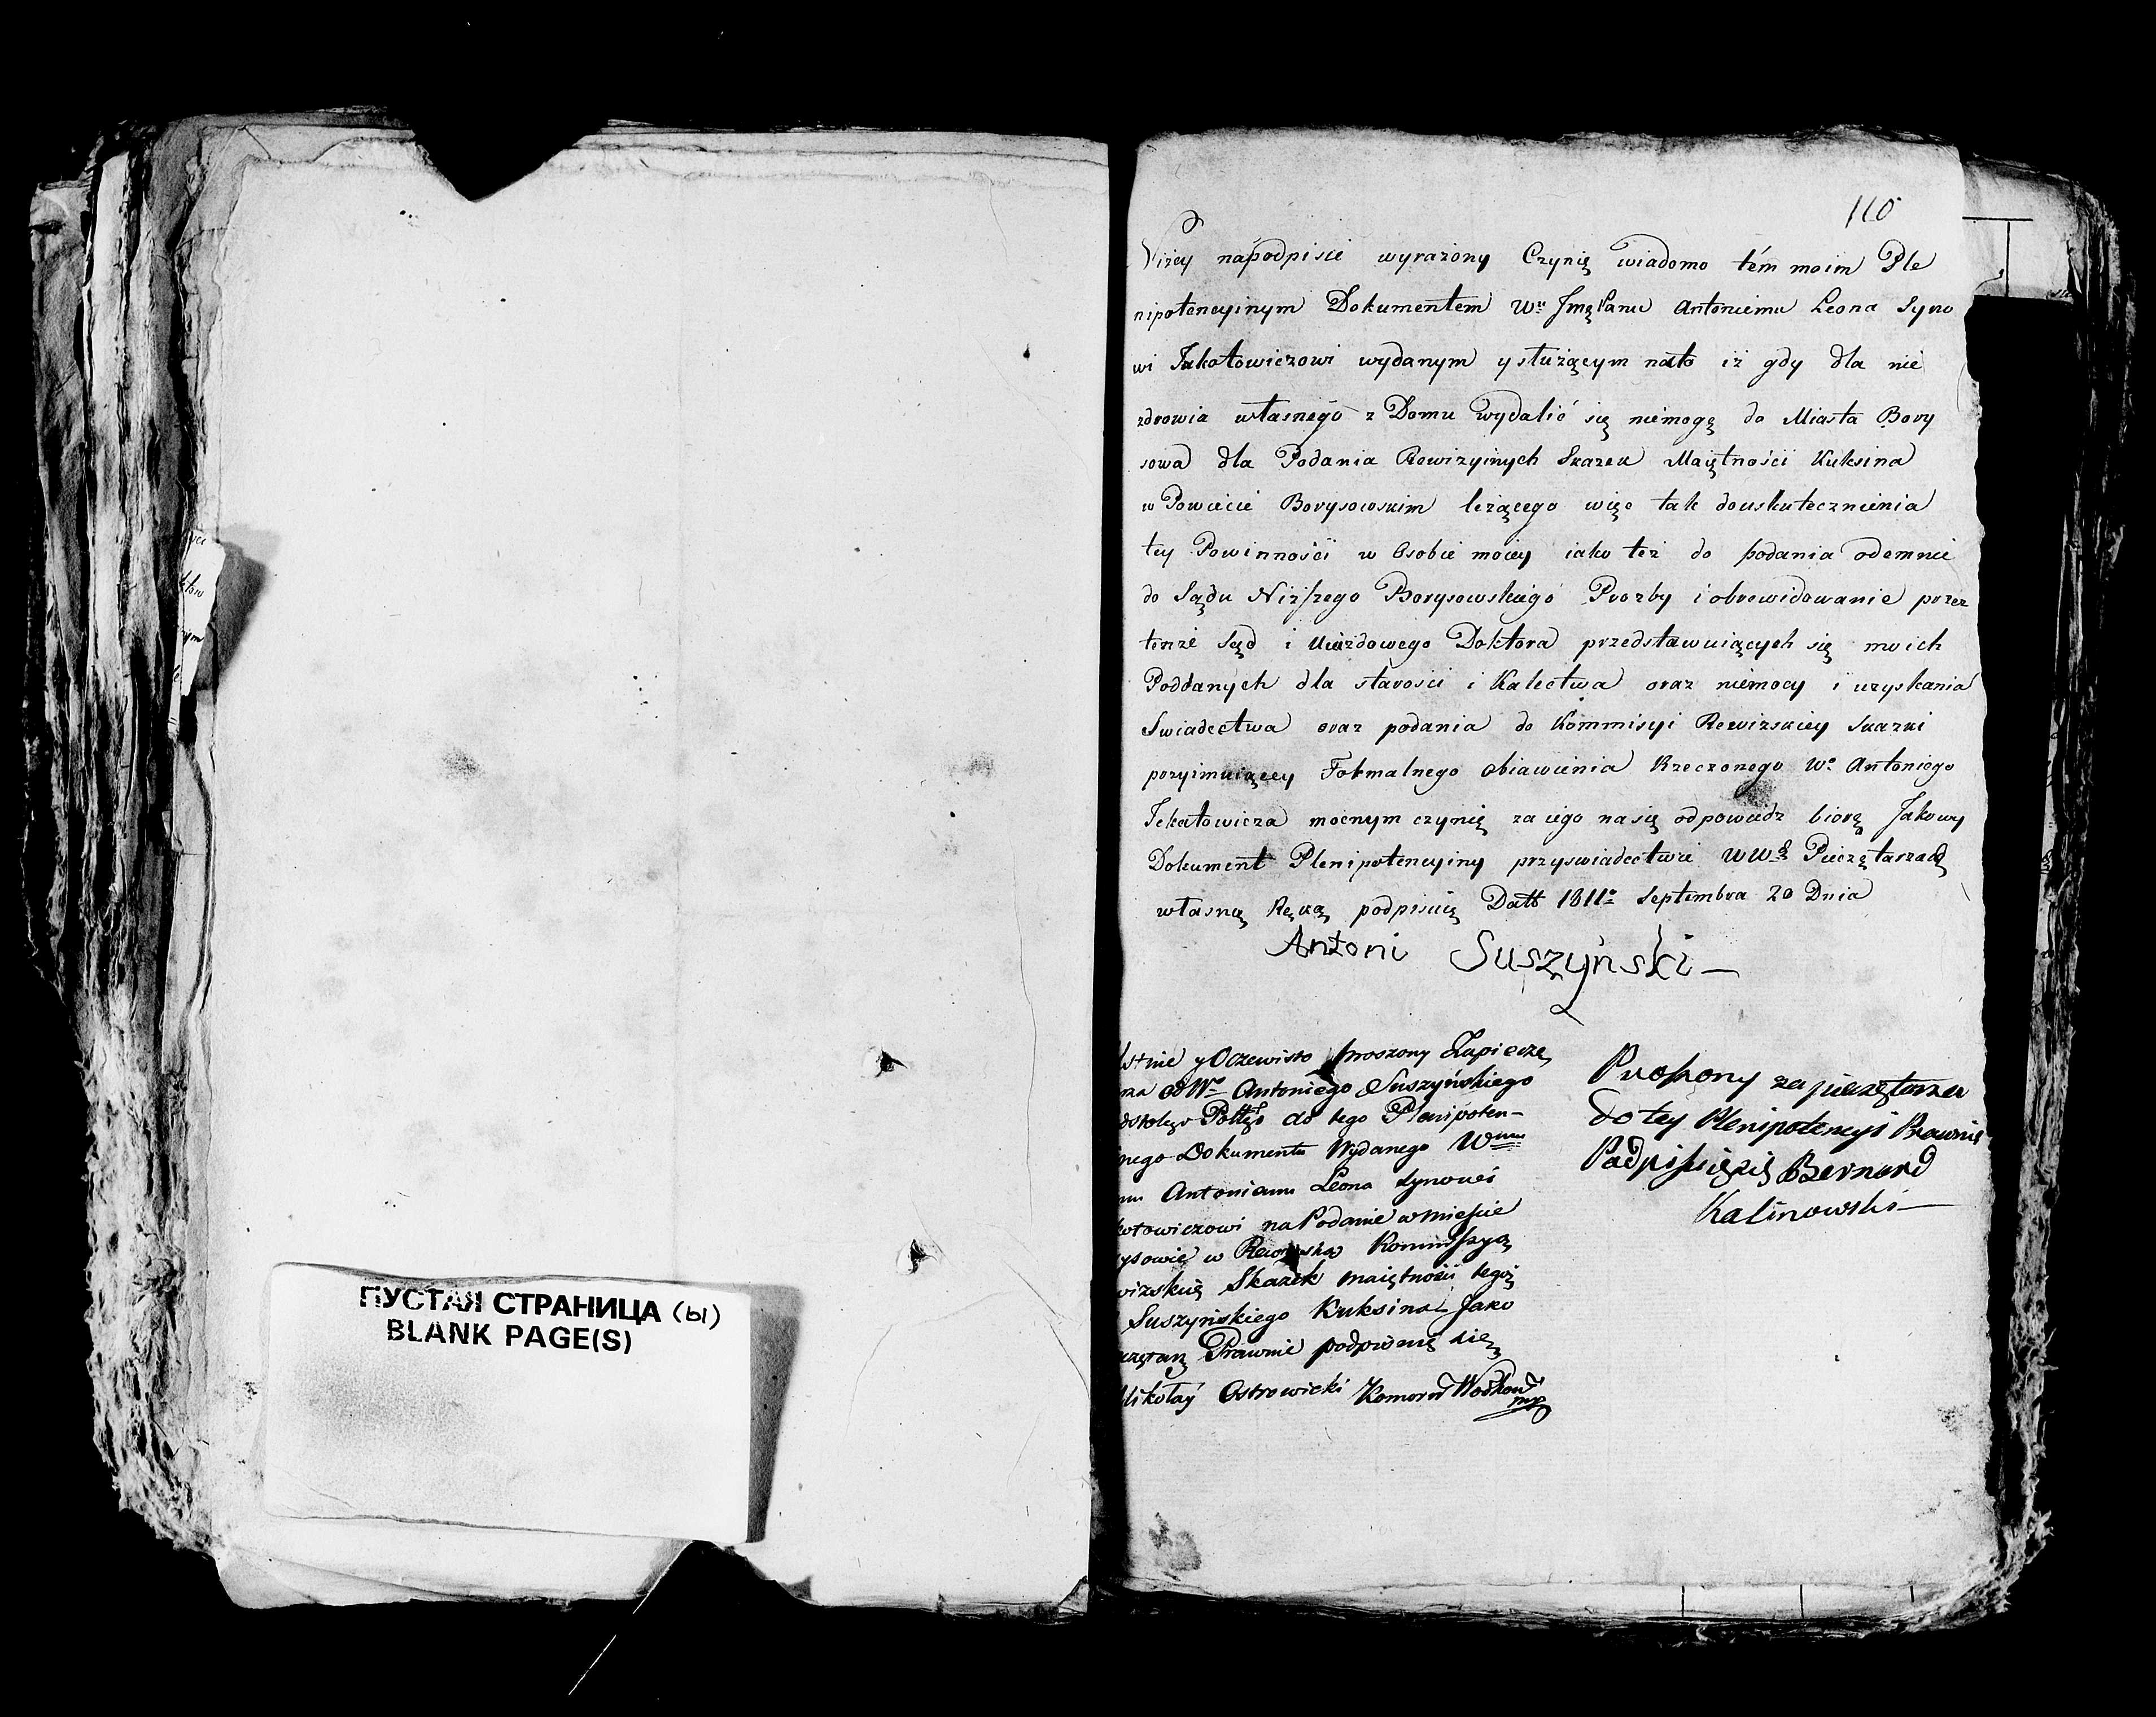 ПУСТАЯ СТРАНИЦА (ы)
BLANK PAGE(S)
110
Niżey napodpisie wyrażony Czynię wiadomo tém moim Ple
nipotencyinym Dokumentem Antoniemu Leona Syno
wi Jakatowiczowi wydanym y służącym nato iż gdy dla nie
zdrowia własnego z Domu wydalić się niemogę do Miasta Bory
sowa dla Podania Rewizyinych Skazek Maiętności Kuksina
w Powiecie Borysowskim leżącego więc tak douskutecznienia
tey Powinności w Osobie moiey iako też do podania odemnie
do Sądu Niższego Borysowskiego Prozby i obrewidowanie przez
tenże Sąd i Uiezdowego Doktora przedstawuiących się moich
Poddanych dla starości i Kalectwa oraz niemocy i uzyskania
Swiadectwa oraz podania do Kommisyi Rewizskiey Skazki
przyimuiącey Formalnego obiawienia Rzeczonego Wo Antoniego
Jekatowicza mocnym czynię za iego nasię odpowiedz biorę Jakowy
Dokument Plenipotencyiny przyswiadectwie Pieczętarzach
własną Ręką podpisuię Datt 1811o Septembra 20 Dnia
Antoni Suszyński
Ustnie y Oczewisto proszony Zapiecze
od Wo Antoniego Suszyńskiego
do tego Plenipoten-
nego Dokumentu Wydanego
Antoniemu Leona Synowi
kotowiczowi na Podanie w Mieście
ysowie w Kommissyą
wizskię Skazek maiętności tegoż
Suszyńskiego Kuksina Jako
Prawnie podpisuię się
Mikołay Ostrowicki
Proszony za pieczętarza
do tey Plenipotencyi Prawnie
Podpisuię się Bernard
Kalinowski